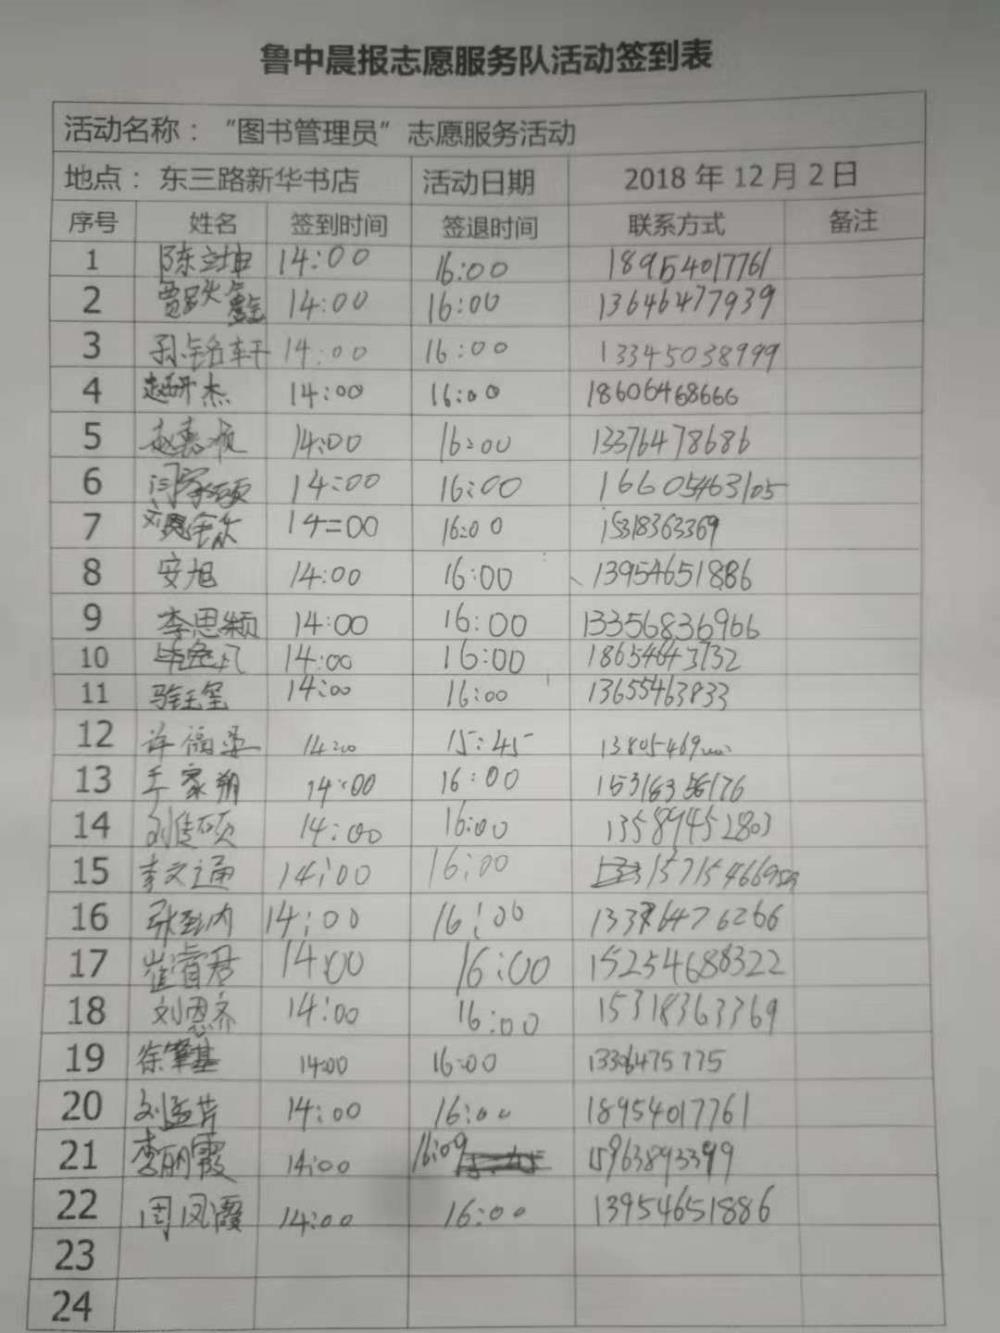 鲁中晨报志愿服务队活动签到表
活动名称：“图书管理员”志愿服务活动
地点：东三路新华书店 活动日期 2018年12月2日
序号 姓名 签到时间 签退时间 联系方式 备注
1 陈立坤 14:00 16:00 18954017761
2 14:00 16:00 13646477939
3 孙铭轩 14:00 16:00 13345038999
4 赵研杰 14:00 16:00 18606468666
5 14:00 16:00 13376478686
6 14:00 16:00 16605463105
7 14=00 16:00 15318363369
8 安旭 14:00 16:00 13954651886
9 李思颖 14:00 16:00 13356836966
10 14:00 16:00 18654643732
11 骆玉玺 14:00 16:00 13655463833
12 14:00 15:45 13805469
13 于家朔 14:00 16:00 15318356176
14 刘传硕 14:00 16:00 13589452803
15 李文通 14:00 16:00
16 14:00 16:00 13376476266
17 崔睿君 14:00 16:00 15254688322
18 刘恩齐 14:00 16:00 15318363369
19 徐肇基 14:00 16:00
20 刘孟芹 14:00 16:00 18954017761
21 李丽霞 14:00 16:09 15963893399
22 周凤霞 14:00 16:00 13954651886
23
24